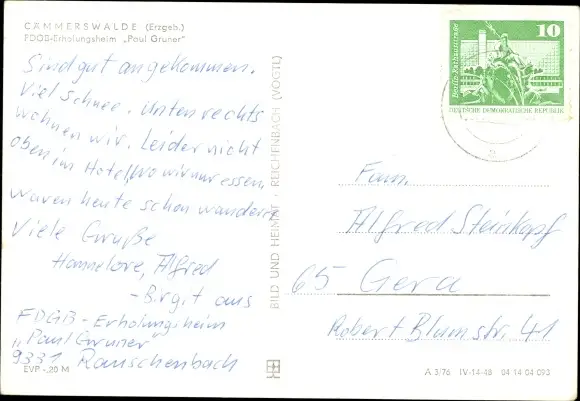 CÄMMERSWALDE (Erzgeb.)
FDGB-Erholungsheim „Paul Gruner"
Sind gut angekommen.
Viel Schnee. Unten rechts
wohnen wir. Leider nicht
oben im Hotel, wo wir nur essen.
Waren heute schon wandern
Viele Grüße
Hannelore, Alfred
- Birgit aus
FDGB-Erholungsheim
„Paul Gruner"
9331 Rauschenbach
EVP -,20 M
BILD UND HEIMAT · REICHENBACH (VOGTL)
10
Berlin-Rathausstraße
DEUTSCHE DEMOKRATISCHE REPUBLIK
Fam.
Alfred Steinkopf
65 Gera
Robert Blumstr. 41
A 3/76 IV-14-48 04 14 04 093